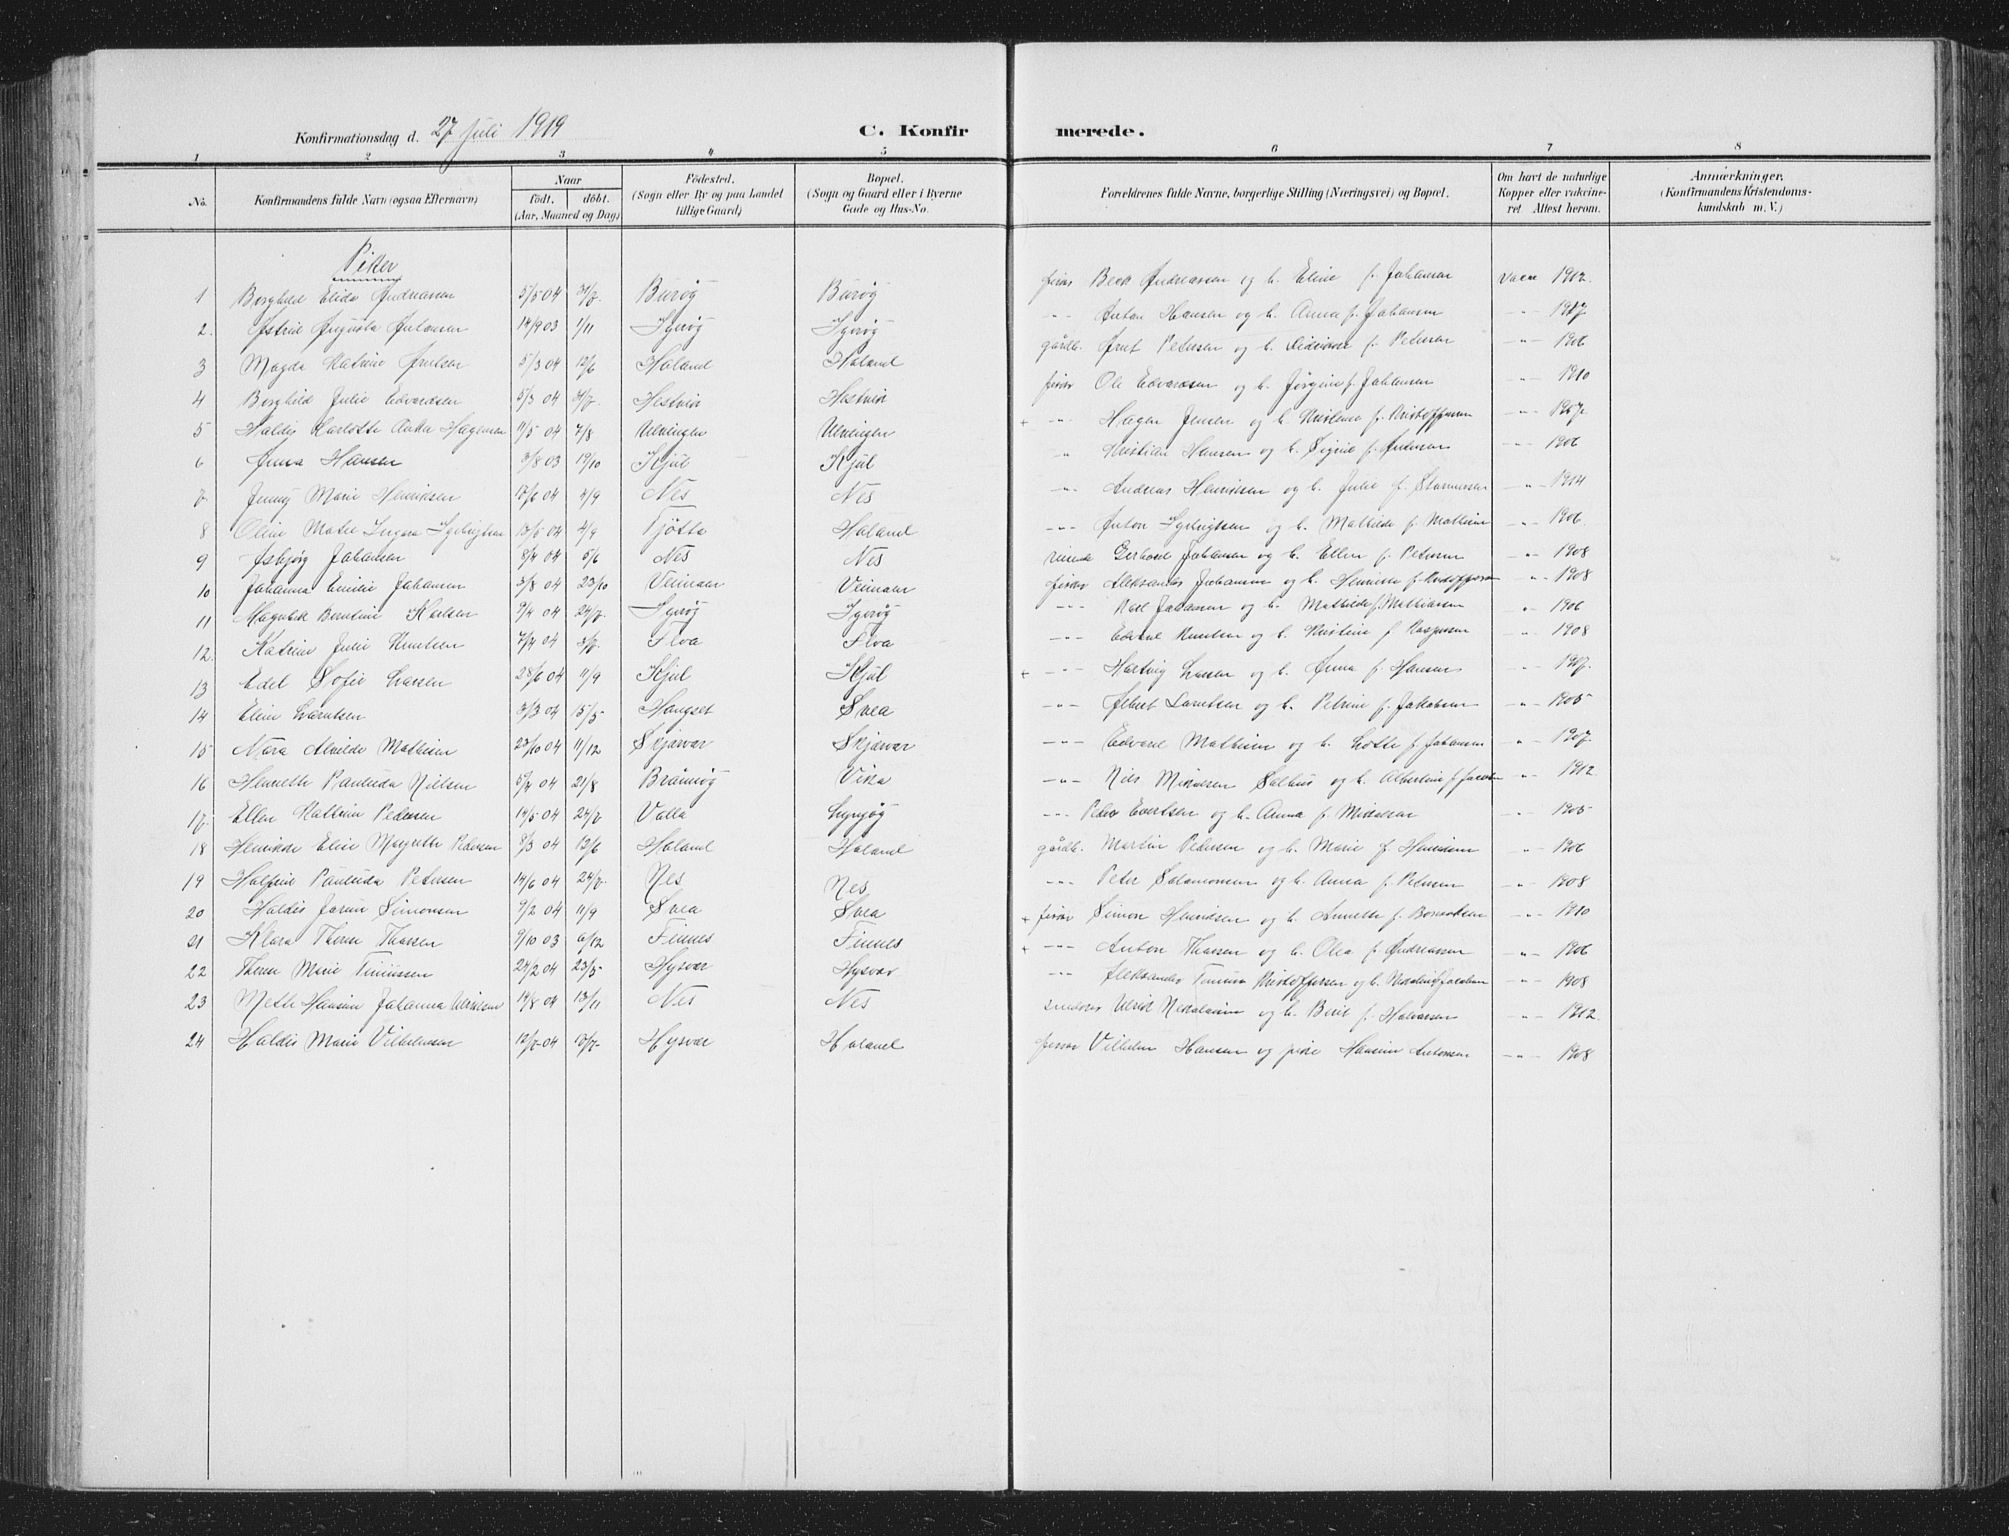 Konfirmationsdag d. 27 juli 1919 C. Konfirmerede.
1 2 3 4 5 6 7 8
No. Konfirmandens fulde Navn (ogsaa Efternavn) Naar födt. döbt. (Aar, Maaned og Dag) Födested. (Sogn eller By og paa Landet tillige Gaard) Bopæl. (Sogn og Gaard eller i Byerne Gade og Hus-No. Forældrenes fulde Navne, borgerlige Stilling (Næringsvei) og Bopæl. Om havt de naturlige Kopper eller vakcineret. Attest herom. Anmærkninger, (Konfirmandens Kristendomskundskab m. V.)
Piker
1 Borghild Elida Andreassen 5/5 04 Burøg Burøg fisker Andreassen og h. Eline f. Johansen Vacc 1912.
2. Astrid Augusta Antonsen 14/9 03 1/11 Igerøg Igerøg -"- Anton Hansen og h. Anna f. Johansen -"- 1917
3 Magda Katrine Arntsen 5/3 04 12/6 Holand Holand gårdb. Arnt Petersen og h. f. Petersen -"- 1906
4 Borghild Julie Edvardsen 5/3 04 Hestvik Hestvik fisker Ole Edvardsen og h. Jørgine f. Johansen -"- 1910
5 Haldis Karlotte Hagensen 11/5 04 7/8 Ulvingen Ulvingen + -"- Hagen Jensen og h. Kristine f. Kristoffersen -"- 1907
6 Anna Hansen 3/8 03 19/10 Kjul Kjul " Kristian Hansen og h. Sigrid f. Andersen -"- 1906
7 Jenny Marie Henriksen 17/6 04 4/9 Nes Nes -"- Andreas Henriksen og h. Julie f. -"- 1914
8 Oline Marie Ingara 13/5 04 4/9 Tjøtta Holand -"- Anton og h. Mathilde f. Mathisen -"- 1906.
9 Asbjørg Johansen 8/4 04 5/6 Nes Nes Gerhard Johansen og h. Ellen f. Petersen -"- 1908
10 Johanna Emilie Johansen 3/8 04 23/10 Veimaar Veimaar fisker Aleksander Johansen og h. Henriette f. Kristoffersen -"- 1908
11 Magnhild Berntine Karlsen 9/4 04 24/7 Igerøg Igerøg -"- Karl Johansen og h. Mathilde f. Mathiassen " 1906
12. Katrine Julie Knutsen 7/4 04 3/7 Flva Flva -"- Edvard Knutsen og h. Kristine f. -"- 1908
13 Edel Sofie Larsen 28/6 04 11/9 Kjul Kjul + -"- Hartvig Larsen og h. Anna f. Hansen -"- 1907.
14 Elin Lorntsen 3/3 04 15/5 Haugset Svea -"- Albert Lorntsen og h. Petrine f. Jakobsen -"- 1905
15 Nora Alvilde Mathisen 23/10 04 11/12 Skjærvær Skjærvær -"- Edvard Mathisen og h. Lotte f. Johansen " 1907.
16 Henriette Paulida Nilsen 5/4 04 21/8 Brännøg Vika -"- Nils Mikalsen Solhus og h. Albertine f. Jacobsen -"- 1912
17 Ellen Kathrine Pedersen 14/5 04 24/7 Valla -"- Peder Evertsen og h. Anna f. Mikalsen -"- 1905
18 Henrikke Eline Margrethe Pedersen 8/3 04 12/6 Holand Holand gårdb. Martin Pedersen og h. Marie f. Henriksen -"- 1906
19 Halfrid Paulida Petersen 14/6 04 24/7 Nes Nes -"- Peter Salamonsen og h. Anna f. Petersen -"- 1908
20 Haldis Jorun Simonsen 9/2 04 11/9 Svea Svea + fisker Simon Henriksen og h. Annette f. -"- 1910
21 Klara Therese Thorsen 9/10 03 6/12 Finnes Finnes + -"- Anton Thorsen og h. Olea f. Andreassen -"- 1906
22 Therese Marie 24/2 04 23/5 Hysvær Hysvær -"- Aleksander Kristoffersen og h. Jacobsen -"- 1908
23 Mette Hansine Johanna Ulriksen 14/8 04 13/11 Nes Nes Ulrik Nikolaisen og h. Berit f. Halvorsen -"- 1912.
24 Haldis Marie Vilhelmsen 12/7 04 Hysvær Holand fisker Vilhelm Hansen og pike Hansine Antonsen -"- 1908